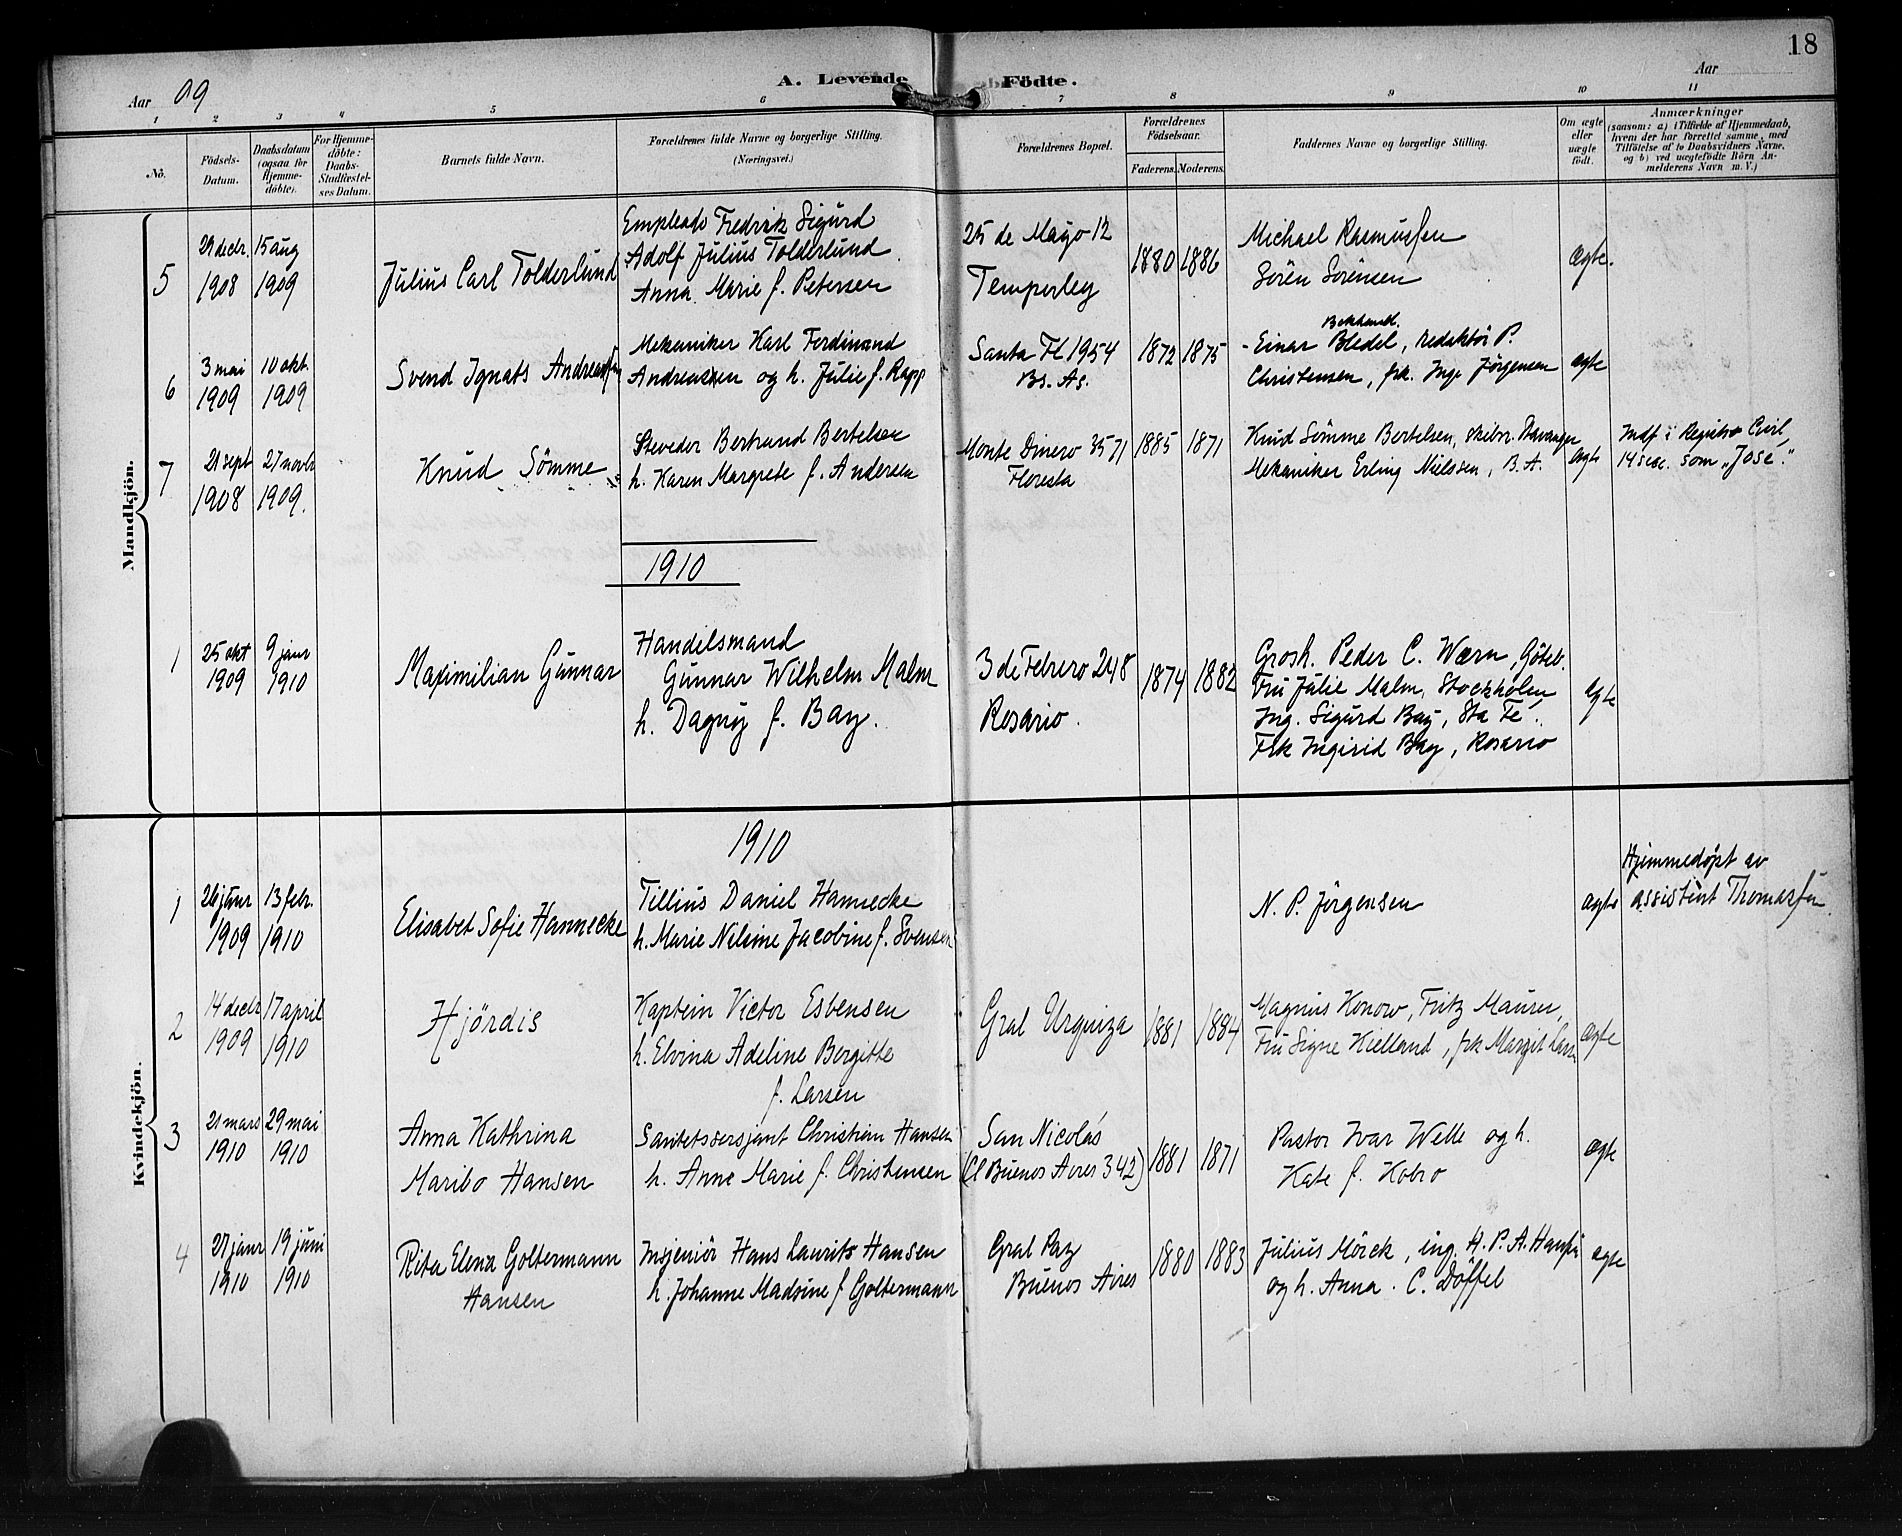 18
A. Levende Födte.
Aar 09
Aar
1 2 3 4 5 6 7 8 9 10 11
No.
Födsels-
Datum.
Daabsdatum
(ogsaa for
Hjemme-
döbte).
For Hjemme-
döbte:
Daabs-
Stadfæstel-
ses Datum.
Barnets fulde Navn.
Forældrenes fulde Navne og borgerlige Stilling.
(Næringsvei.)
Forældrenes Bopæl.
Forældrenes
Födselsaar.
Faderens. Moderens.
Faddernes Navne og borgerlige Stilling.
Om ægte
eller
uægte
födt.
Anmærkninger
(saasom: a) i Tilfælde af Hjemmedaab,
hvem der har forrettet samme, med
Tilföielse af to Daabsvidners Navne,
og b) ved uægtefödte Börn An-
melderens Navn m. V.)
Mandkjön.
5
29 decbr. 1908
15 aug 1909
Julius Carl Tolderlund
Empleado Fredrik Sigurd
Adolf Julius Tolderlund
Anna Marie f. Petersen
25 de Mayo 12
Temperley
1880 1886
Michael Rasmussen
Sören Sörensen
ægte.
6
3 mai 1909
10 okt. 1909
Svend Ignats Andreassen
Mekaniker Karl Ferdinand
Andreassen og h. Julie f. Rapp
Santa Fé 1954
Bs. As.
1872 1875
Bokhandl.
Einar Bledel, redaktör P.
Christensen, frk. Inge Jörgensen
ægte
7
21 sept 1908
27 novbr 1909.
Knud Sömme
Steveder Bertrand Bertelsen
h. Karen Margrete f. Andersen
Monte Dinero 3571
Floresta
1885 1871
Knud Sömme Bertelsen, skibsr. Stavanger
Mekaniker Erling Nielssen, B. A.
ægte
Indf i Registro Civil,
14 secc. som "José."
1910
1
25 okt 1909
9 janr 1910
Maximilian Gunnar
Handelsmand
Gunnar Wilhelm Malm
h. Dagny f. Bay.
3 de Febrero 248
Rosario.
1874 1882
Grosh. Peder C. Wærn, Göteb.
Fru Julie Malm, Stockholm
Ing. Sigurd Bay, Sta Fé.
Frk Ingirid Bay, Rosario
ægte
Kvindekjön.
1910
1
26 janr 1909
13 febr. 1910
Elisabet Sofie Hannecke
Tillius Daniel Hannecke
h. Marie Nilsine Jacobine f. Svensen
N. P. Jörgensen
ægte
Hjemmedöpt av
assistent Thomassen
2
14 decbr 1909
17 april 1910
Hjördis
Kaptein Victor Esbensen
h. Elvina Adeline Bergitte
f. Larsen
Gral Urquiza
1881 1884
Magnus Konow, Fritz Maurer,
Fru Signe Kielland, frk Margit Larsen
ægte
3
21 mars 1910
29 mai 1910
Anna Kathrina
Maribo Hansen
Sanitetssersjant Christian Hansen
h. Anne Marie f. Christensen
San Nicolás
(Cl Buenos Aires 342)
1881 1871
Pastor Ivar Welle og h.
Kate f. Kobro
ægte
4
27 janr 1910
19 juni 1910
Rita Elena Goltermann
Hansen
Ingeniör Hans Laurits Hansen
h. Johanne Madsine f Goltermann
Gral Paz
Buenos Aires
1880 1883
Julius Mörck, ing. H. P. A. Hansen
og h. Anna. C. Döffel
ægte